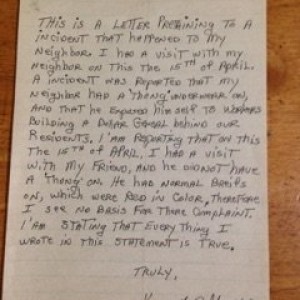 THIS IS A LETTER PRETAINING TO A
INCIDENT THAT HAPPENED TO MY
NEIGHBOR. I HAD A VISIT WITH MY
NEIGHBOR ON THIS THE 15TH OF APRIL.
A INCIDENT WAS REPORTED THAT MY
NEIGHBOR HAD A "THONG" UNDERWEAR ON,
AND THAT HE EXPOSED HIM SELF TO WORKERS
BUILDING A DOLAR GENERAL BEHIND OUR
RESIDENTS. I'AM REPORTING THAT ON THIS
THE 15TH OF APRIL, I HAD A VISIT
WITH MY FRIEND, AND HE DID NOT HAVE
A "THONG" ON. HE HAD NORMAL BREIFS
ON, WHICH WERE RED IN COLOR, THEREFORE
I SEE NO BASIS FOR THERE COMPLAINT.
I'AM STATING THAT EVERYTHING I
WROTE IN THIS STATEMENT IS TRUE.
TRULY,